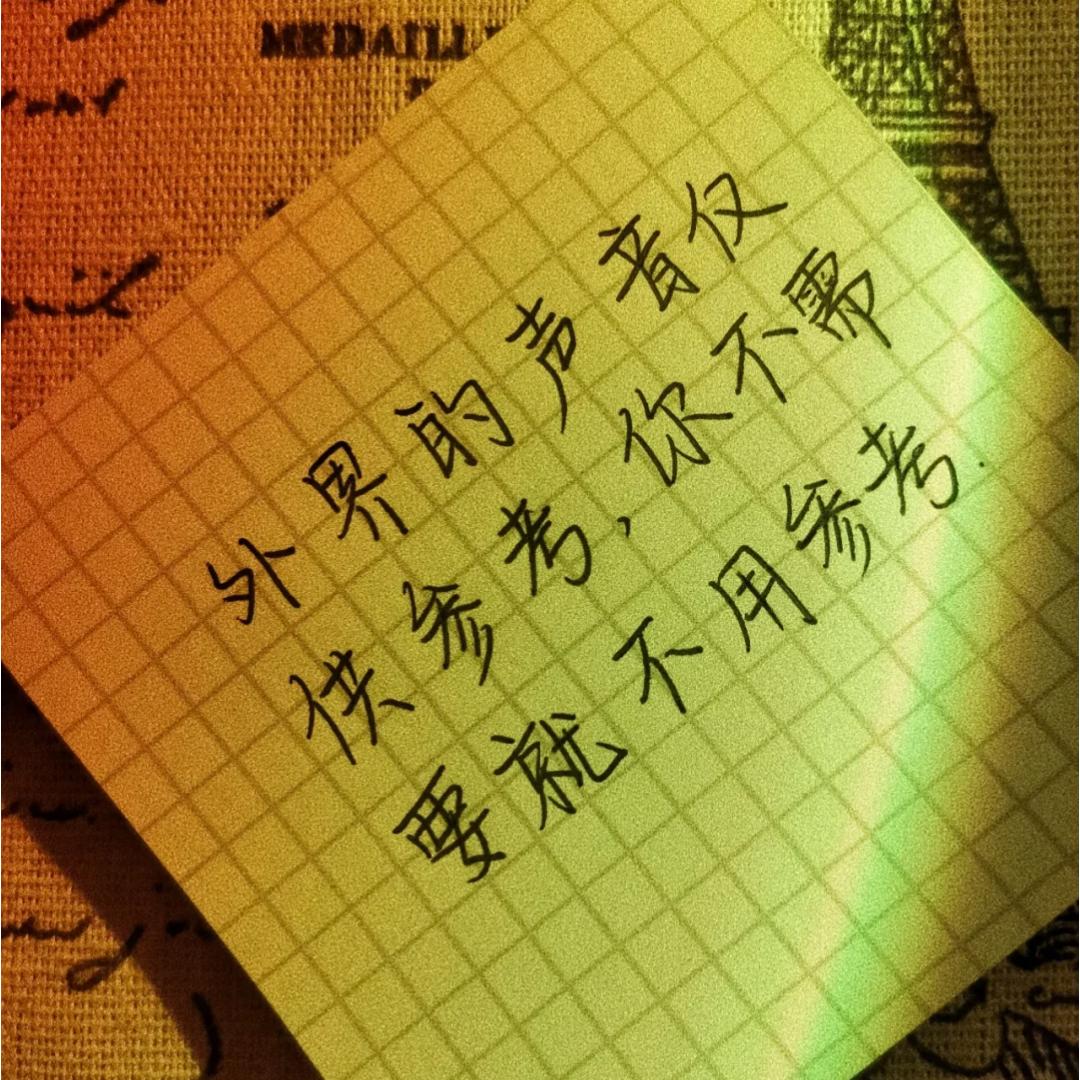 MEDAILL
外界的声音仅
供参考，你不需
要就不用参考.